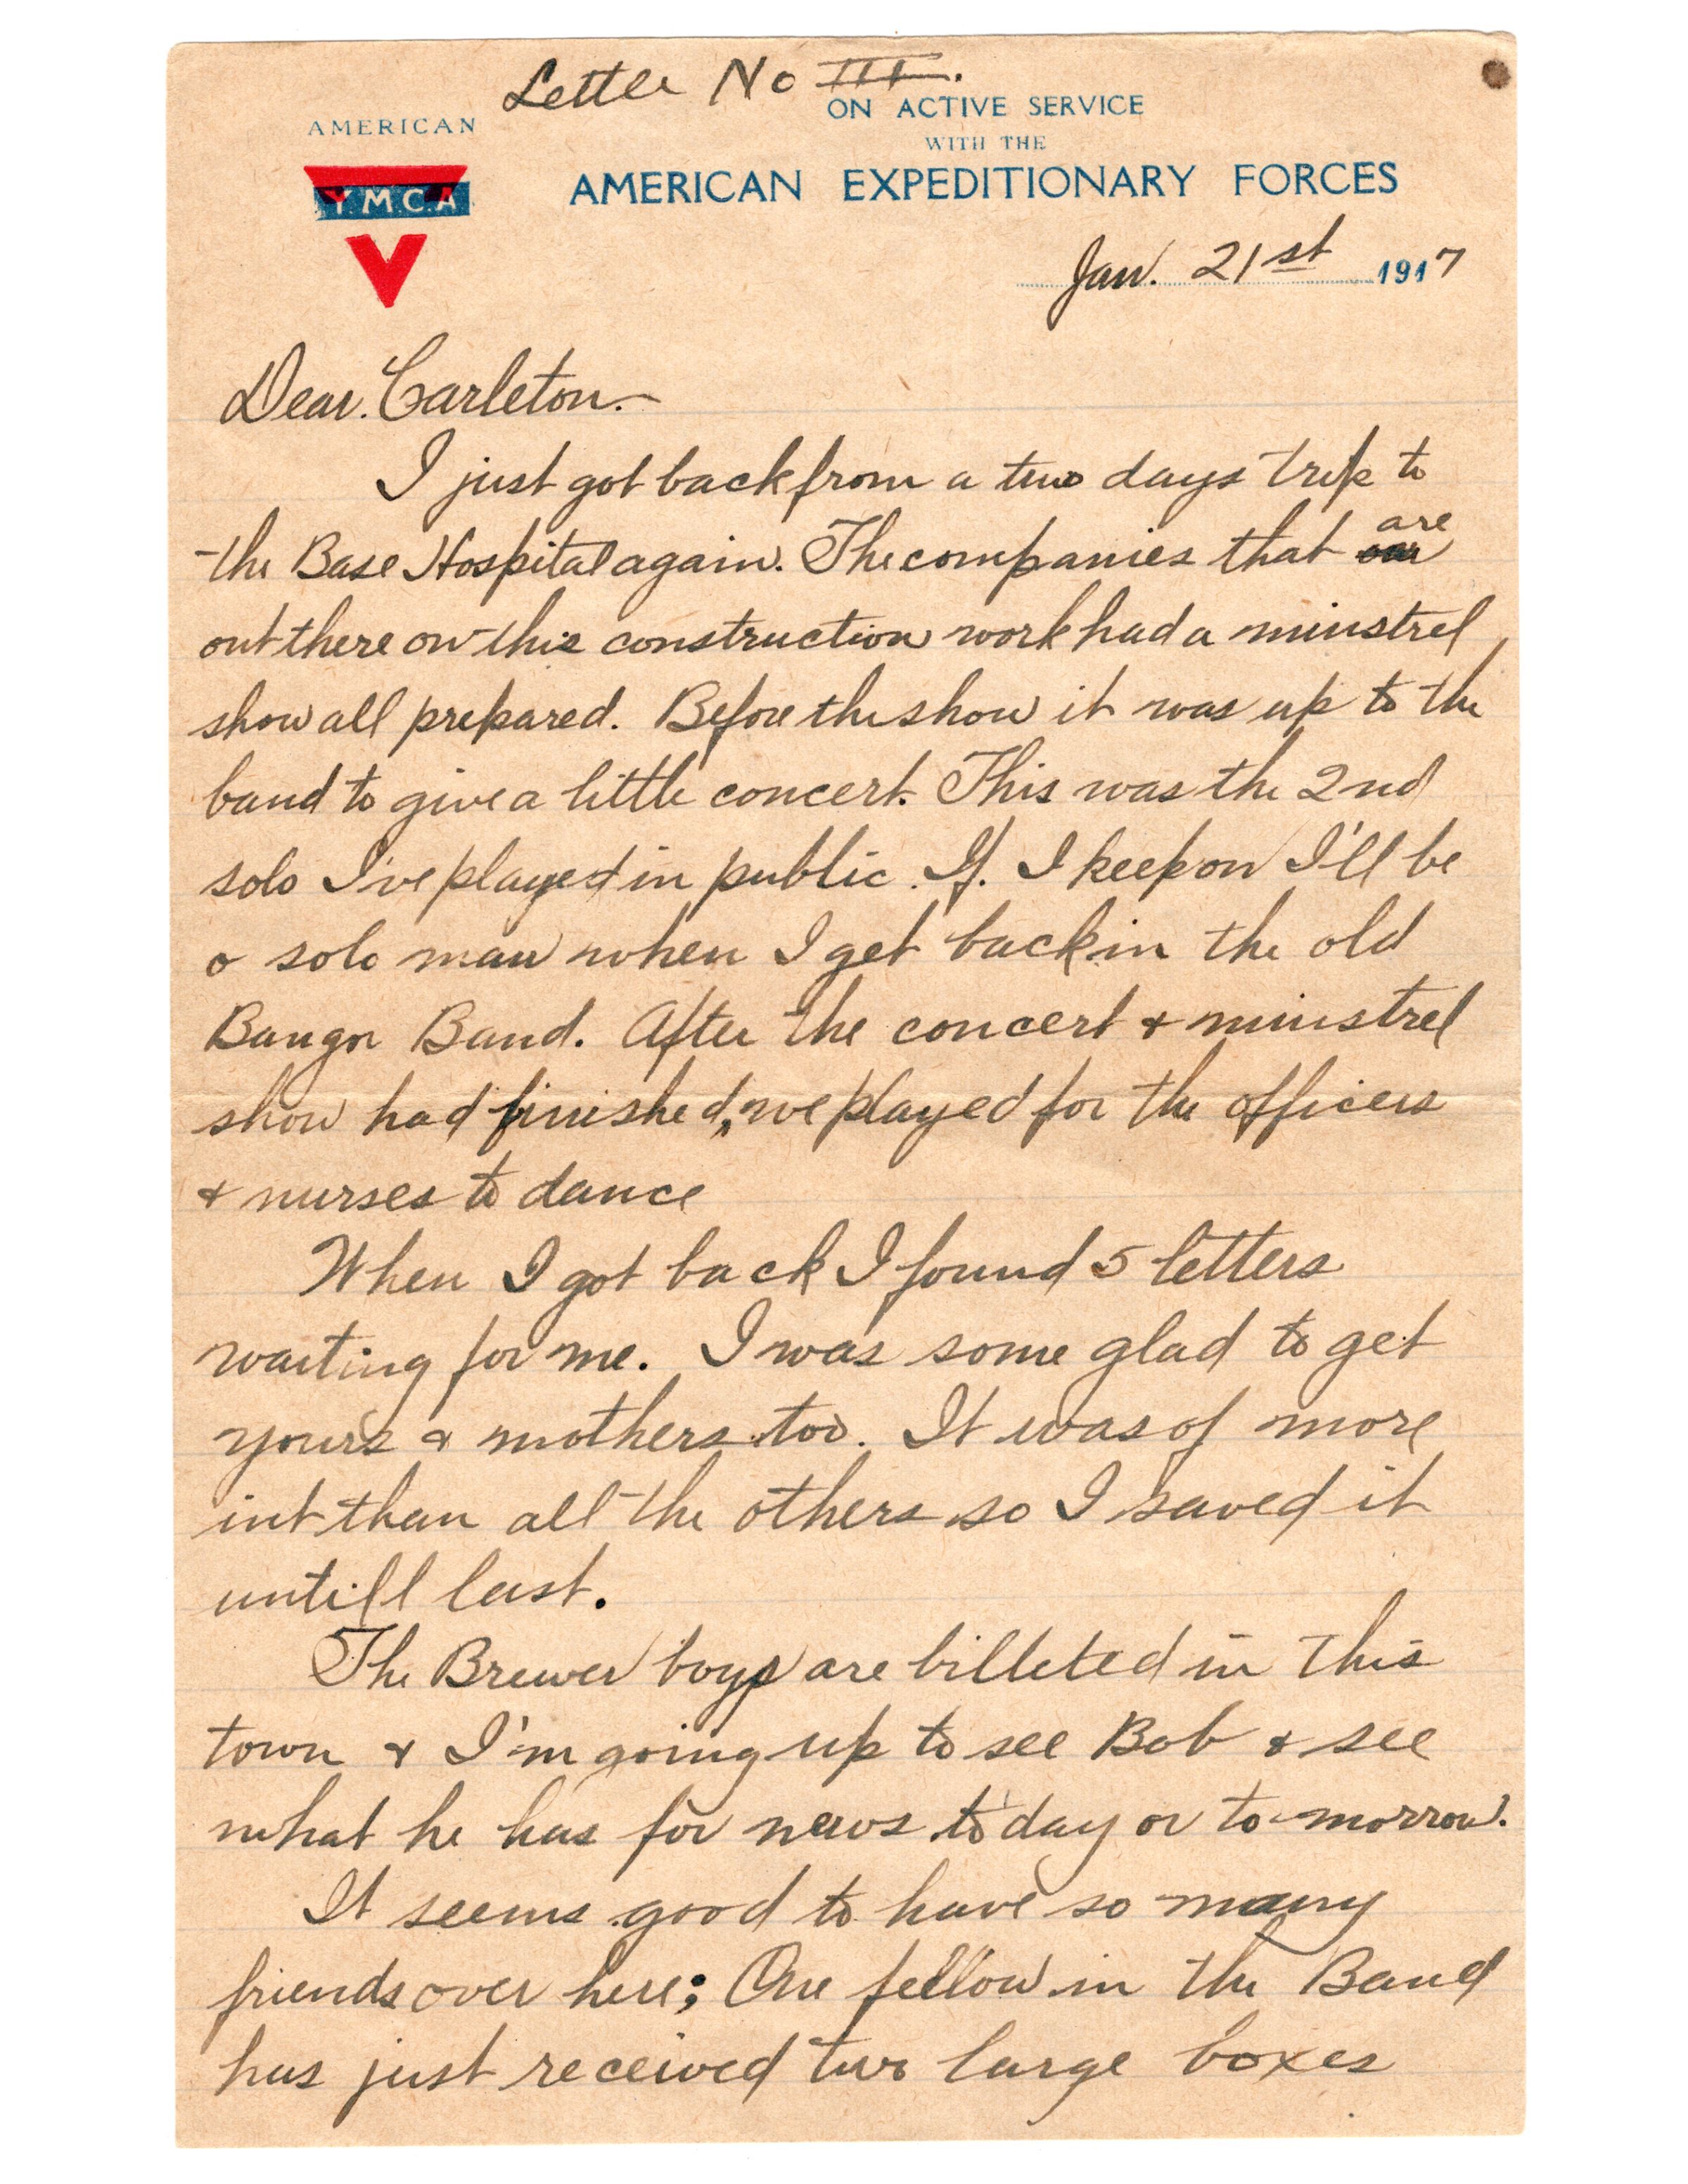 Letter No III.
ON ACTIVE SERVICE
AMERICAN
WITH THE
Y.M.C.A
AMERICAN EXPEDITIONARY FORCES
Jan. 21st 1917
Dear. Carleton.-
I just got back from a two days trip to
the Base Hospital again. The companies that are
out there on this construction work had a minstrel
show all prepared. Before the show it was up to the
band to give a little concert. This was the 2nd
solo I've played in public. If. I keep on I'll be
a solo man when I get back in the old
Bangor Band. After the concert & minstrel
show had finished, we played for the officers
& nurses to dance
When I got back I found 5 letters
waiting for me. I was some glad to get
yours & mothers too. It was of more
int than all the others so I saved it
untill last.
The Brewer boys are billeted in this
town & I'm going up to see Bob & see
what he has for news to day or to-morrow.
It seems good to have so many
friends over here; One fellow in the Band
has just received two large boxes